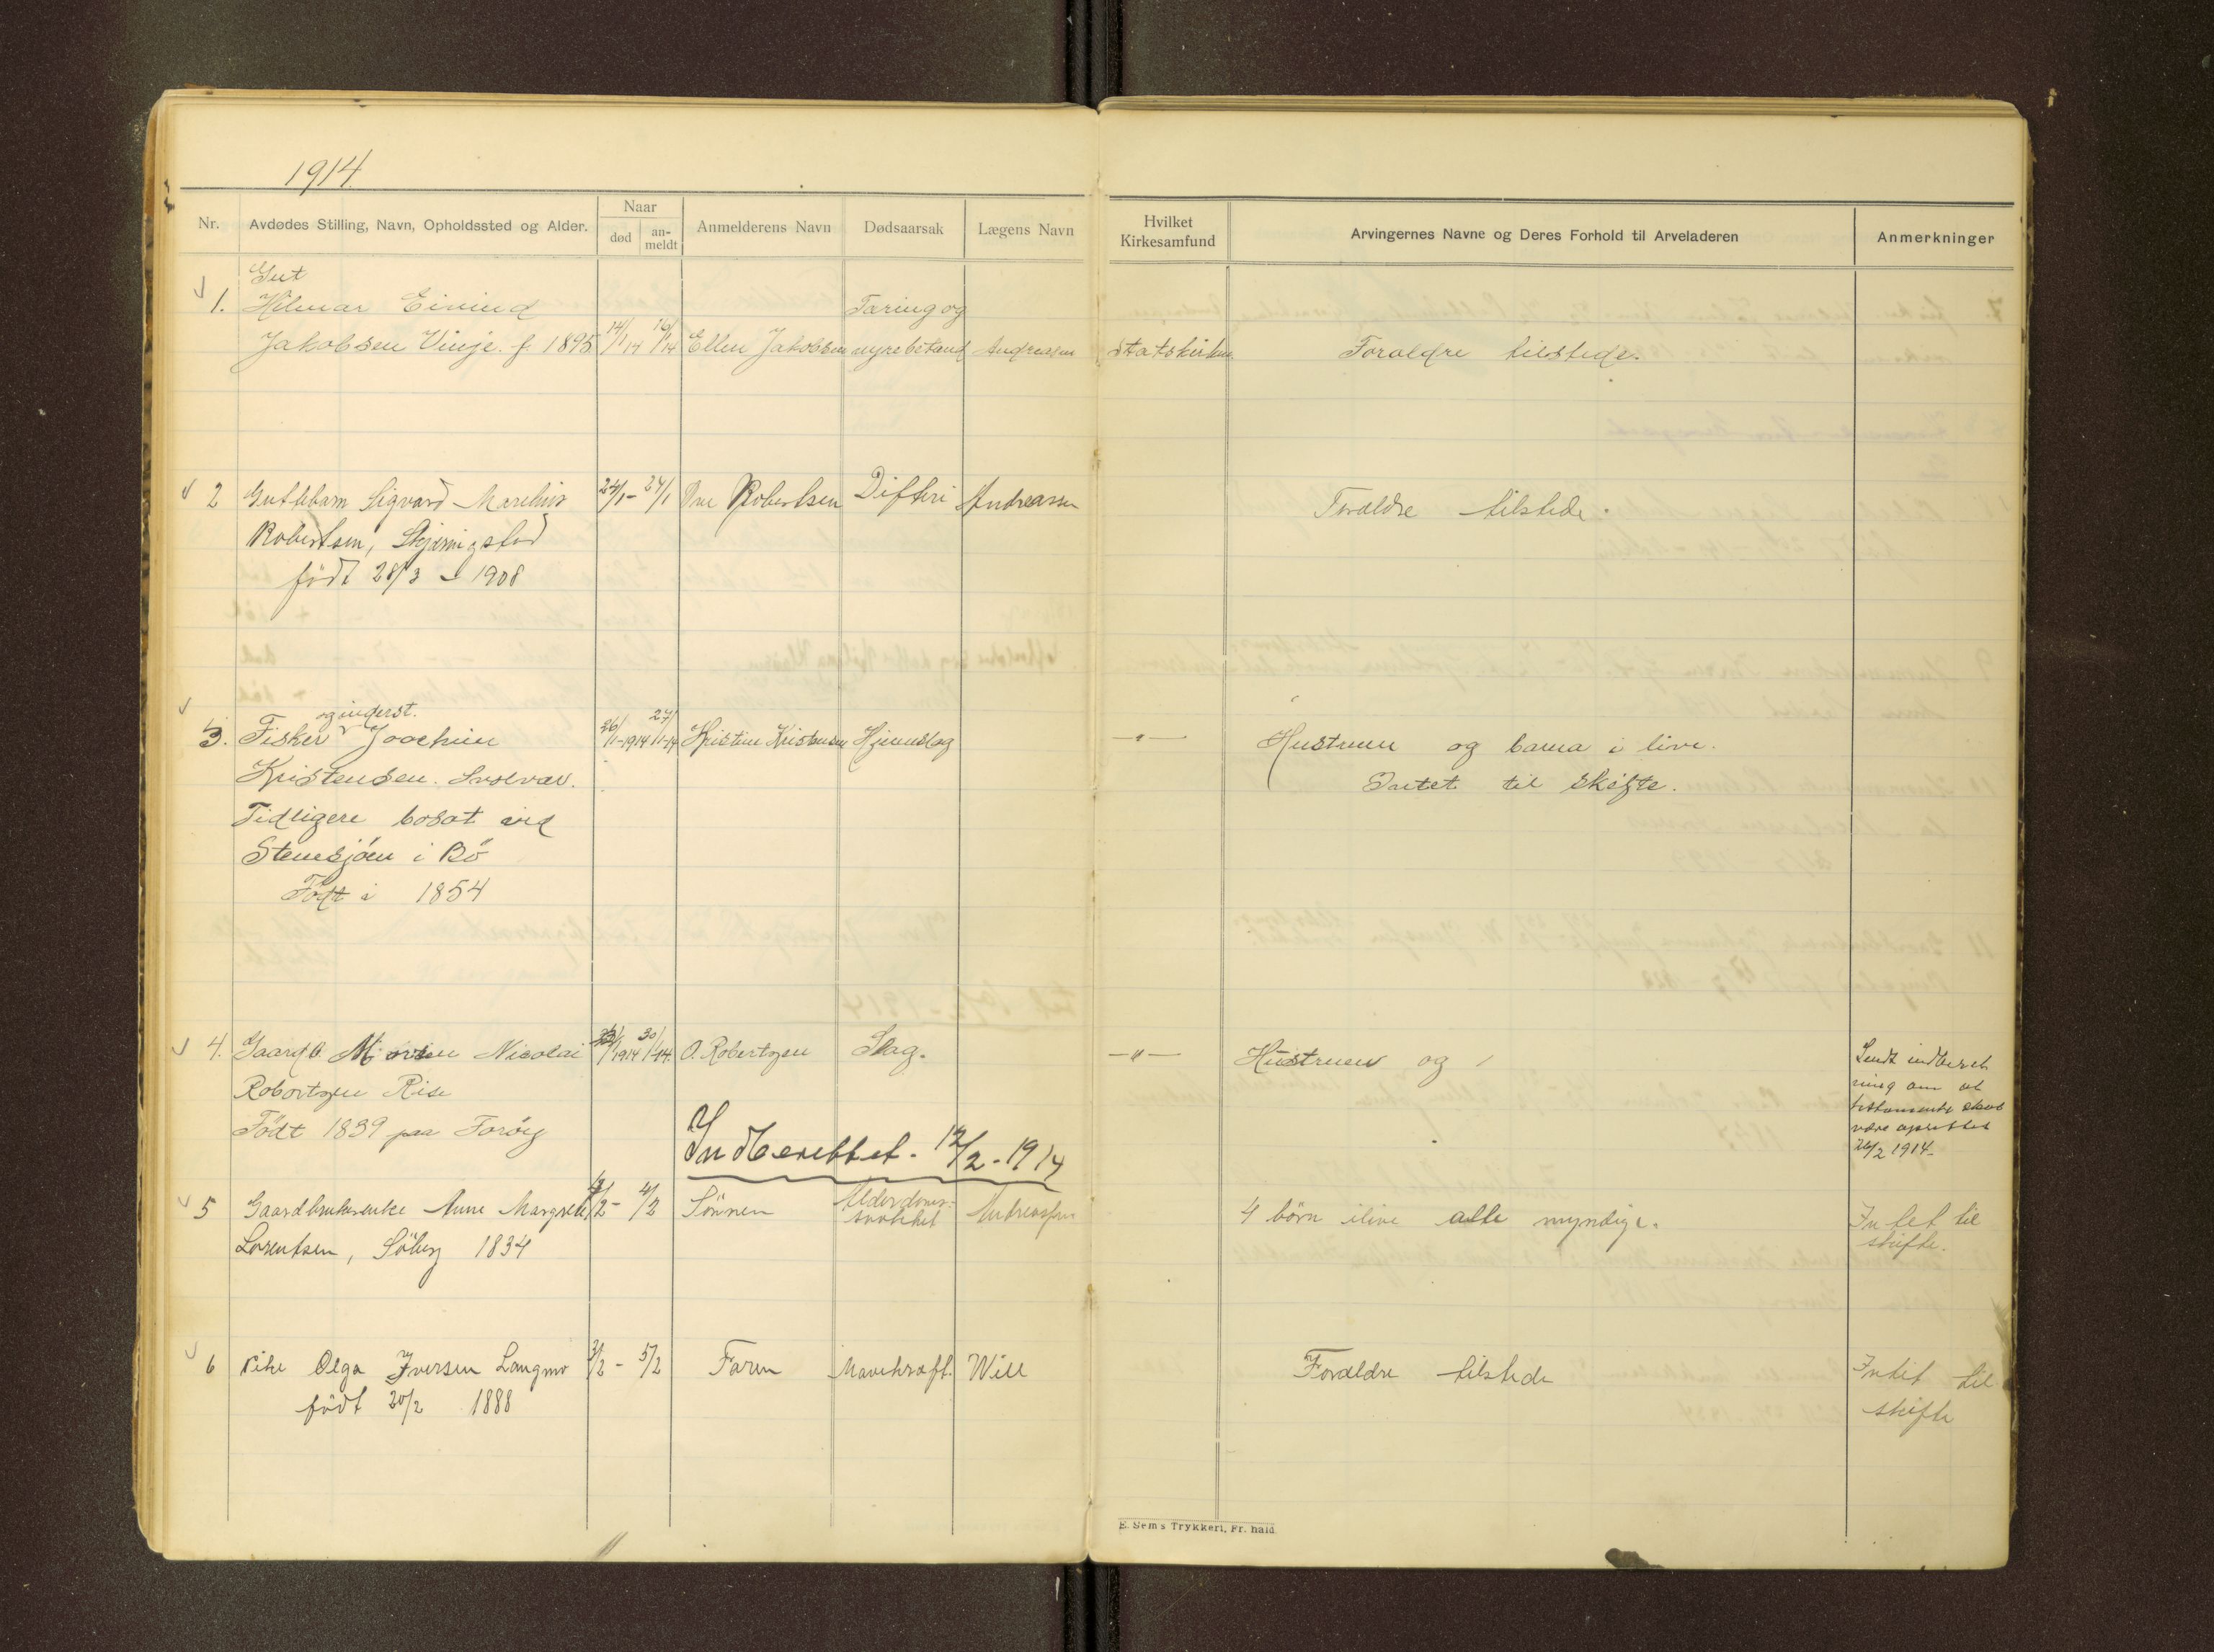 1914
Nr.
Avdødes Stilling, Navn, Opholdssted og Alder.
Naar
død
an-
meldt
Anmelderens Navn
Dødsaarsak
Lægens Navn
Hvilket
Kirkesamfund
Arvingernes Navne og Deres Forhold til Arveladeren
Anmerkninger
Gut
1. Hilmar Eivind
Jakobsen Vinje. f. 1895
14/1 14
16/1 14
Ellen Jakobsen
Tæring og
nyrebetænd
Andreassen
Statskirken
Forældre tilstede.
2 Guttebarn Sigvard Marelius
Robertsen, Skjørnigstad
født 28/3 - 1908
24/1 - 24/1
Robertsen
Difteri
Andreassen
Forældre tilstede.
og inderst.
3. Fisker Joachim
Kristensen. Svolvær.
Tidligere bosat ved
Stensjöen i Bö
Født i 1854
26/1-1914
27/1-14
Kristine Kristensen
Hjerneslag
— " —
Hustruen og barna i live.
Intet til skifte.
4. Gaardb. Morten Nicolai
Robertsen Rise
Født 1839 paa Forøy
1914
30/1 14.
O. Robertsen
Slag.
— " —
Hustruen og
Sendt indberet
ning om at
testamente skal
være oprettet
1914.
Indberettet. 12/2 - 1914
5 Gaardbrukerenke Anne Margrete
Lorentsen, Söberg 1834
/2 - 4/2
Sönnen
Alderdoms-
svakhet
Andreassen
4 börn ilive alle myndige.
Intet til
skifte.
6 Pike Olga Iversen Langmo
födt 20/2 1888
3/2 - 5/2
Faren
Mavekræft.
Will
Forældre tilstede
Intet til
skifte
E. Sem's Trykkeri, Fr. hald